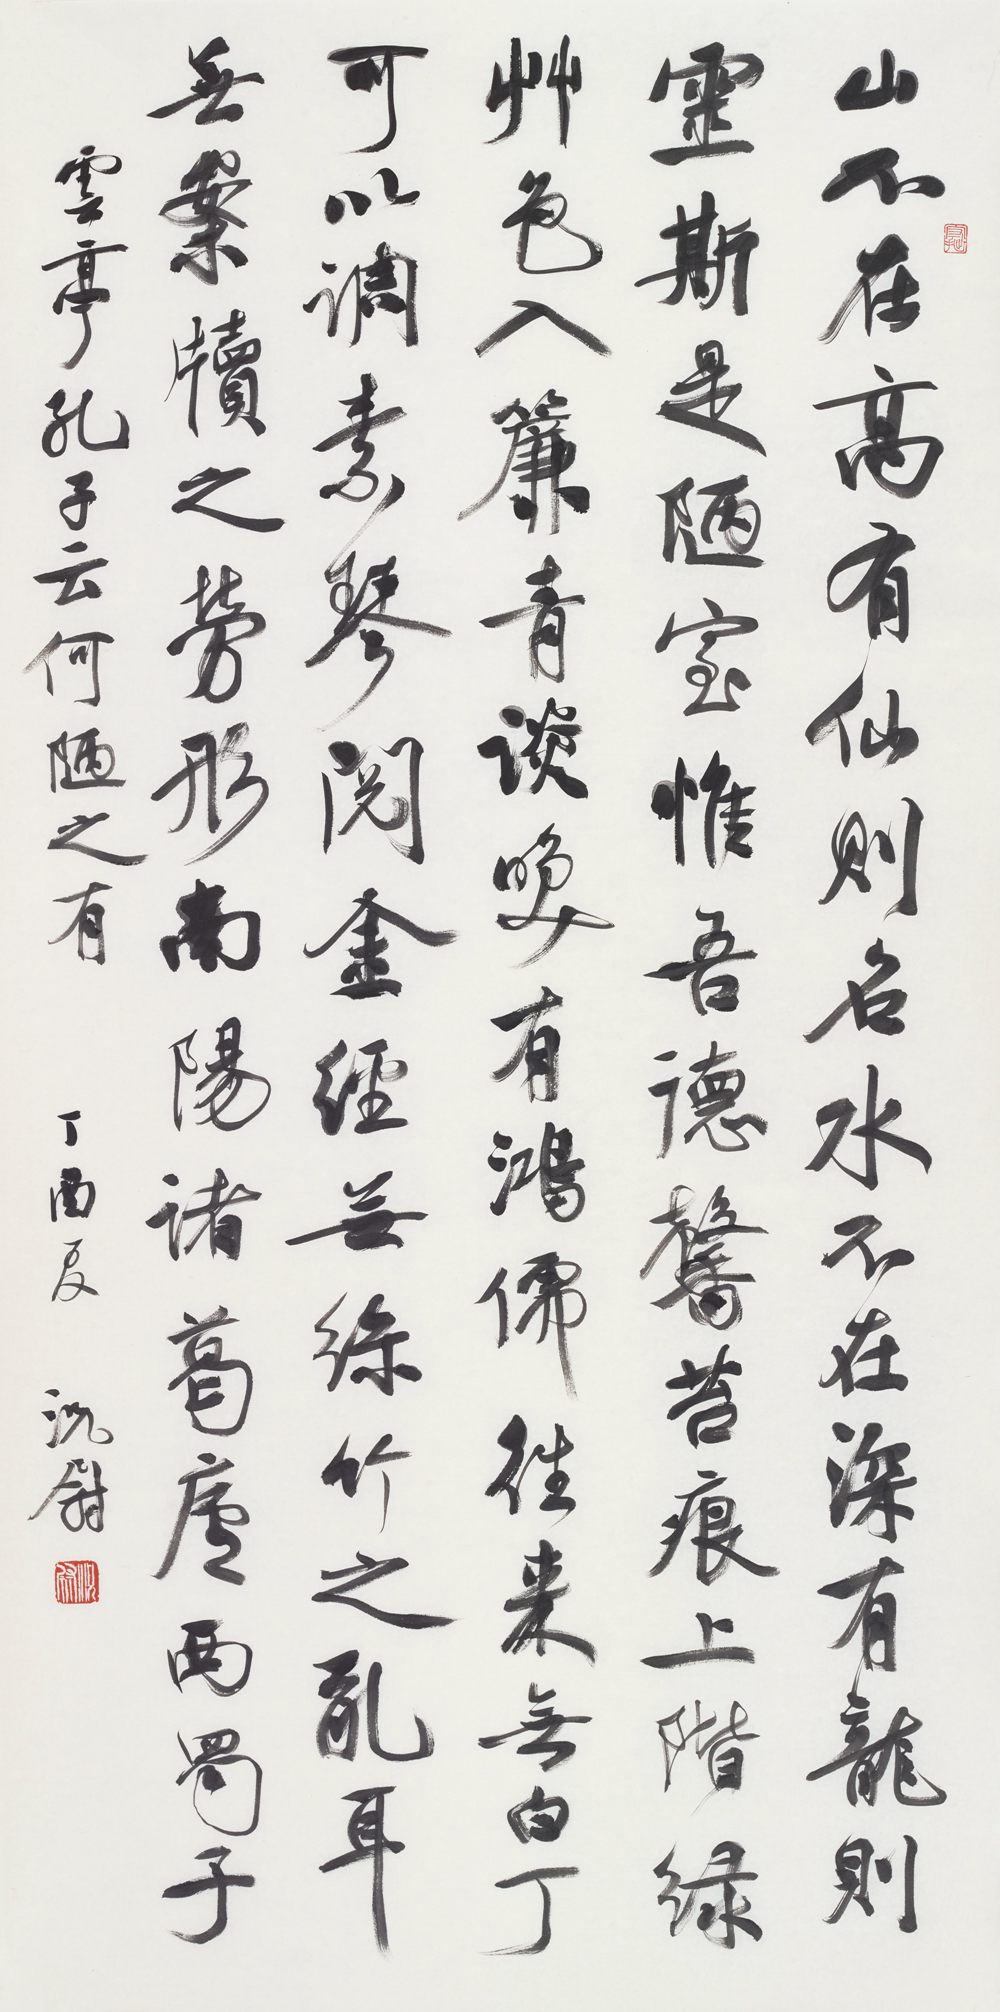 山不在高有仙則名水不在深有龍則
靈斯是陋室惟吾德馨苔痕上階綠
艸色入簾青談咲有鴻儒往來無白丁
可以調素琴閱金經無絲竹之亂耳
無案牘之勞形南陽諸葛廬西蜀子
雲亭孔子云何陋之有 丁酉夏 沈